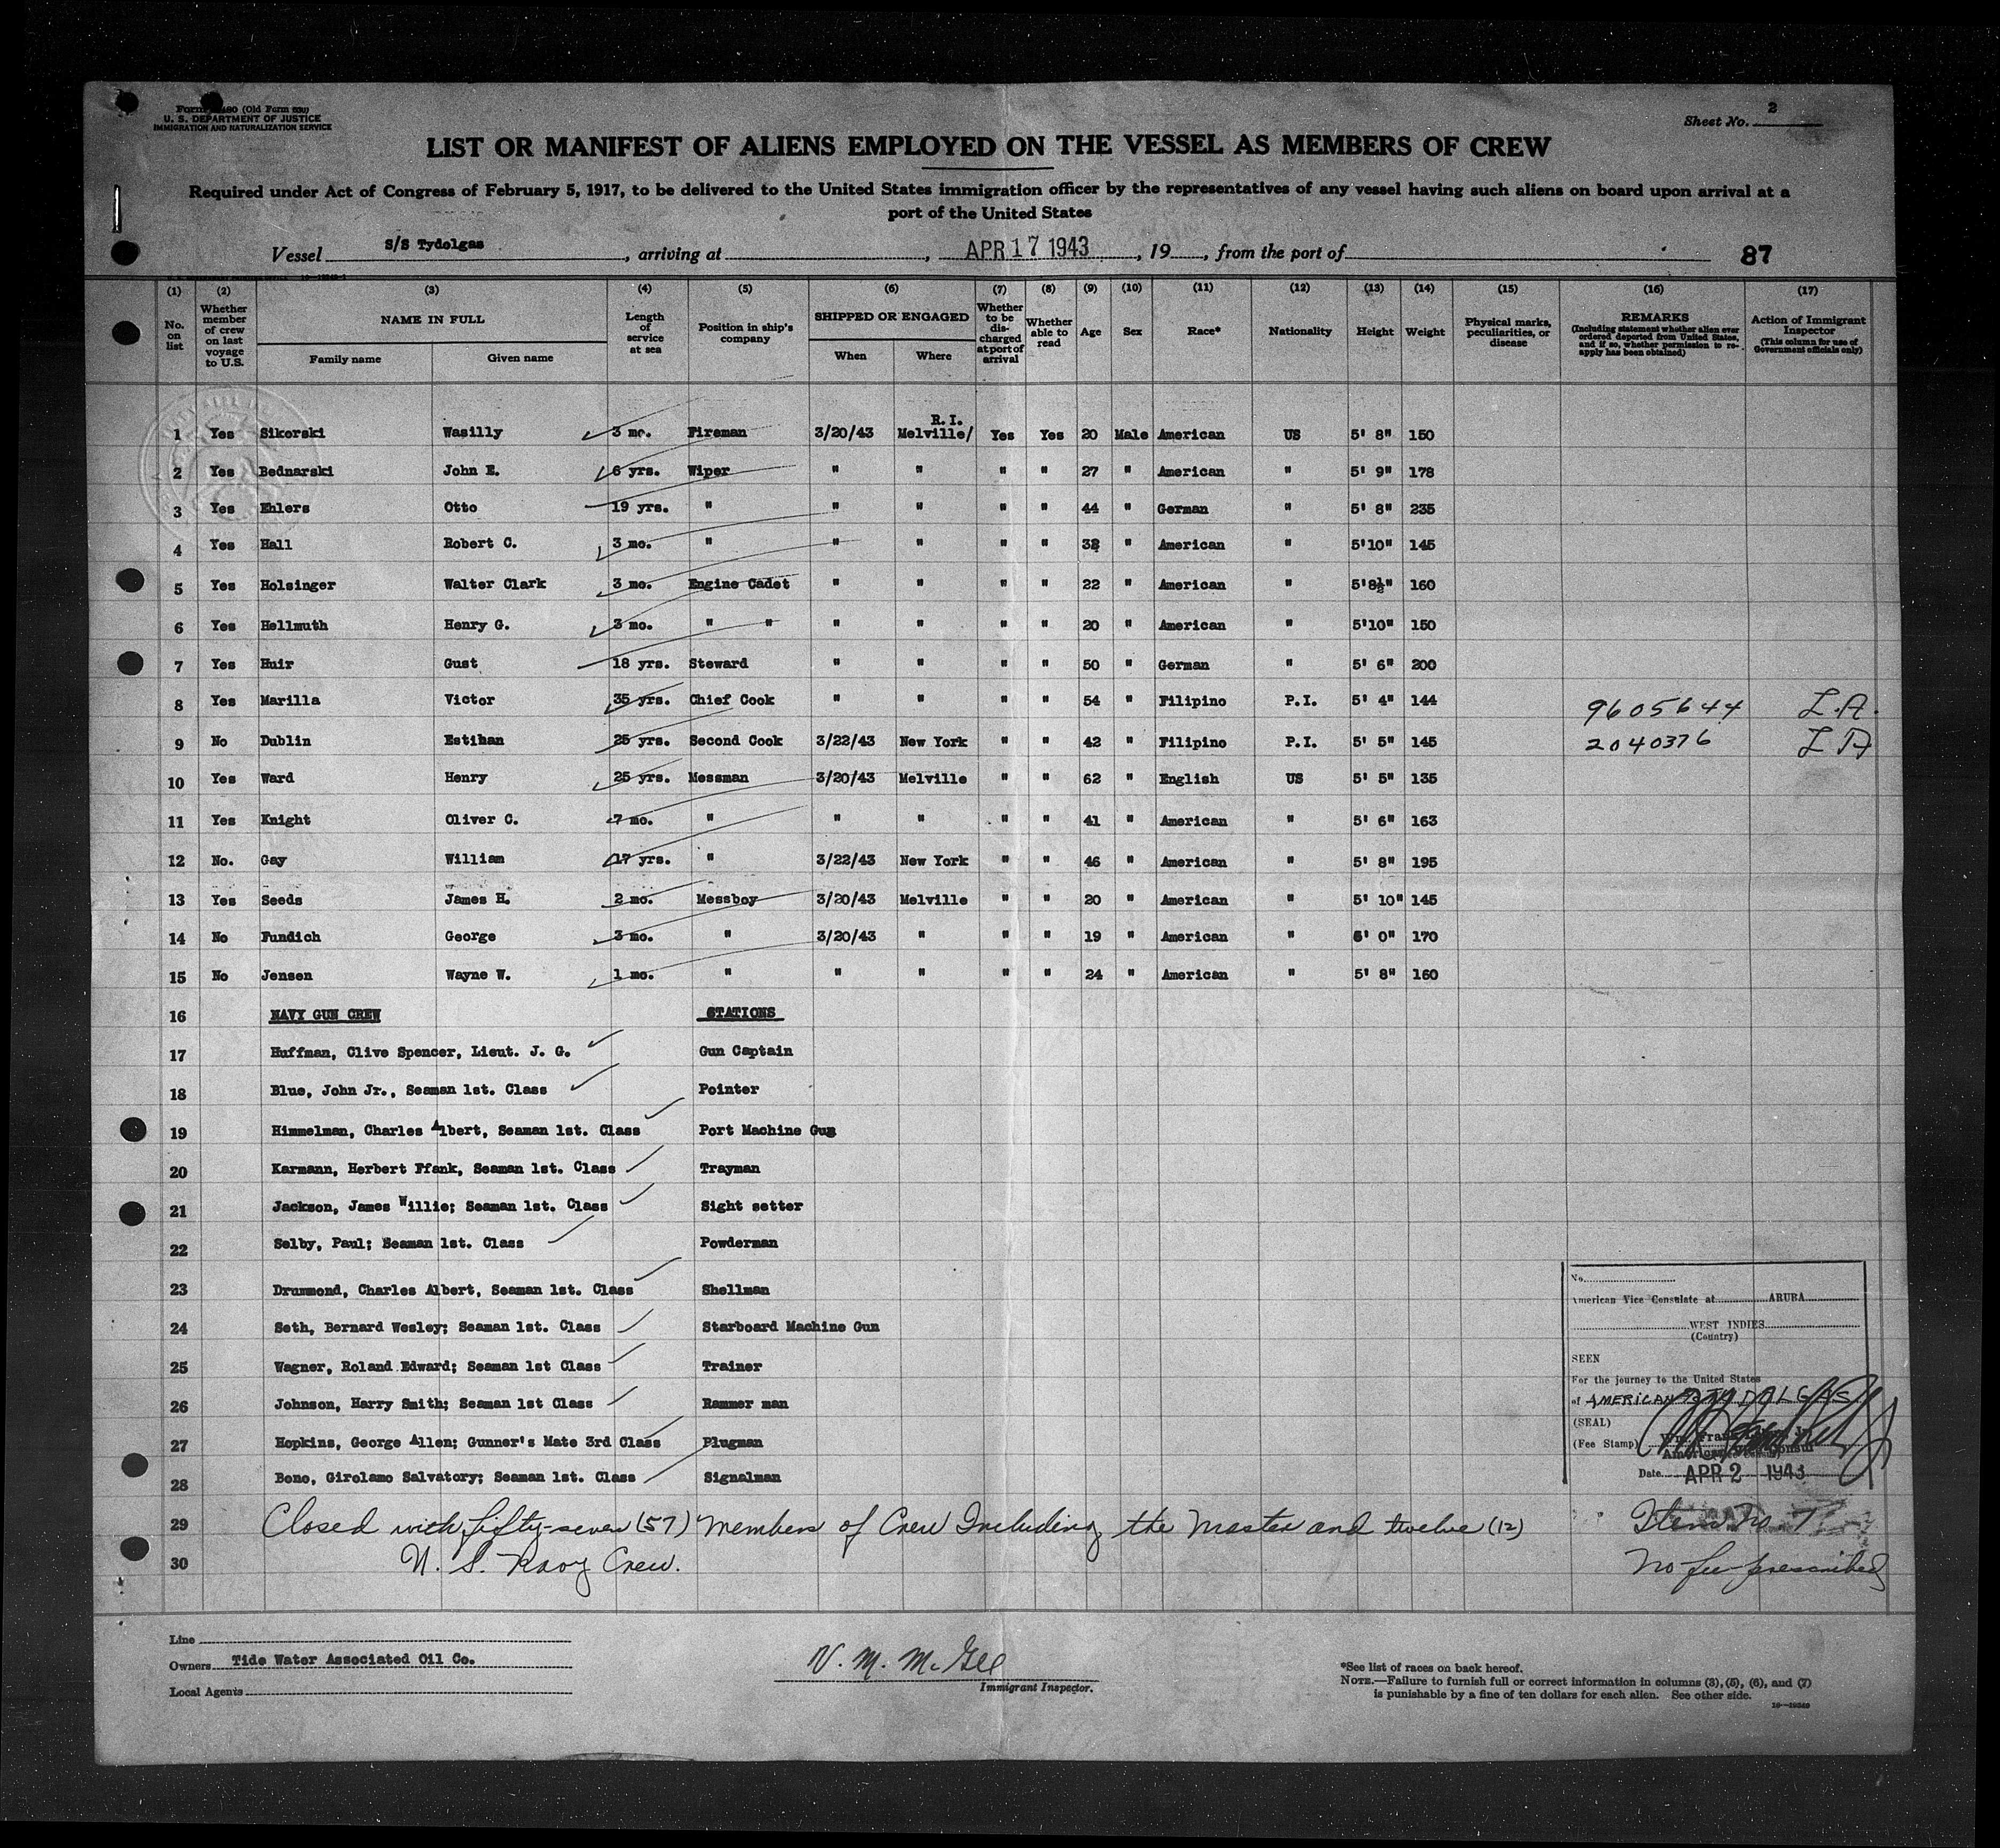 Form 480 (Old Form 689)
U. S. DEPARTMENT OF JUSTICE
IMMIGRATION AND NATURALIZATION SERVICE
Sheet No. 2
LIST OR MANIFEST OF ALIENS EMPLOYED ON THE VESSEL AS MEMBERS OF CREW
Required under Act of Congress of February 5, 1917, to be delivered to the United States immigration officer by the representatives of any vessel having such aliens on board upon arrival at a
port of the United States
Vessel S/S Tydolgas, arriving at , APR 17 1943, 19 , from the port of 87
(1) No. on list (2) Whether member of crew on last voyage to U.S. (3) NAME IN FULL Family name Given name (4) Length of service at sea (5) Position in ship's company (6) SHIPPED OR ENGAGED When Where (7) Whether to be discharged at port of arrival (8) Whether able to read (9) Age (10) Sex (11) Race* (12) Nationality (13) Height (14) Weight (15) Physical marks, peculiarities, or disease (16) REMARKS (Including statement whether alien ever ordered deported from United States, and if so, whether permission to re-apply has been obtained) (17) Action of Immigrant Inspector (This column for use of Government officials only)
1 Yes Sikorski Wasilly 3 mo. Fireman 3/20/43 Melville/ R.I. Yes Yes 20 Male American US 5' 8" 150
2 Yes Bednarski John E. 6 yrs. Wiper " " " " 27 " American " 5' 9" 178
3 Yes Ehlers Otto 19 yrs. " " " " " 44 " German " 5' 8" 235
4 Yes Hall Robert C. 3 mo. " " " " " 38 " American " 5'10" 145
5 Yes Holsinger Walter Clark 3 mo. Engine Cadet " " " " 22 " American " 5'8½" 160
6 Yes Hellmuth Henry G. 3 mo. " " " " " " 20 " American " 5'10" 150
7 Yes Huir Gust 18 yrs. Steward " " " " 50 " German " 5' 6" 200
8 Yes Marilla Victor 35 yrs. Chief Cook " " " " 54 " Filipino P.I. 5' 4" 144 9605644 L.A.
9 No Dublin Estihan 25 yrs. Second Cook 3/22/43 New York " " 42 " Filipino P.I. 5' 5" 145 2040376 L A
10 Yes Ward Henry 25 yrs. Messman 3/20/43 Melville " " 62 " English US 5' 5" 135
11 Yes Knight Oliver C. 7 mo. " " " " " 41 " American " 5' 6" 163
12 No. Gay William 17 yrs. " 3/22/43 New York " " 46 " American " 5' 8" 195
13 Yes Seeds James H. 2 mo. Messboy 3/20/43 Melville " " 20 " American " 5' 10" 145
14 No Fundich George 3 mo. " 3/20/43 " " " 19 " American " 6' 0" 170
15 No Jensen Wayne W. 1 mo. " " " " " 24 " American " 5' 8" 160
16 NAVY GUN CREW STATIONS
17 Huffman, Clive Spencer, Lieut. J. G. Gun Captain
18 Blue, John Jr., Seaman 1st. Class Pointer
19 Himmelman, Charles Albert, Seaman 1st. Class Port Machine Gun
20 Karmann, Herbert Ffank, Seaman 1st. Class Trayman
21 Jackson, James Willie; Seaman 1st. Class Sight setter
22 Selby, Paul; Seaman 1st. Class Powderman
23 Drummond, Charles Albert, Seaman 1st. Class Shellman
24 Seth, Bernard Wesley; Seaman 1st. Class Starboard Machine Gun
25 Wagner, Roland Edward; Seaman 1st Class Trainer
26 Johnson, Harry Smith; Seaman 1st Class Rammer man
27 Hopkins, George Allen; Gunner's Mate 3rd Class Plugman
28 Bono, Girolamo Salvatory; Seaman 1st. Class Signalman
29 Closed with fifty-seven (57) members of Crew Including the Master and twelve (12)
30 U. S. Navy Crew.
No.
American Vice Consulate at ARUBA
WEST INDIES
(Country)
SEEN
For the journey to the United States
of AMERICAN S/S TYDOLGAS
(SEAL)
(Fee Stamp)
American Vice Consul
Date APR 2 1943
Item No. 7
No fee prescribed
Line
Owners Tide Water Associated Oil Co.
Local Agents
N. M. McGee
Immigrant Inspector.
*See list of races on back hereof.
NOTE.—Failure to furnish full or correct information in columns (3), (5), (6), and (7)
is punishable by a fine of ten dollars for each alien. See other side.